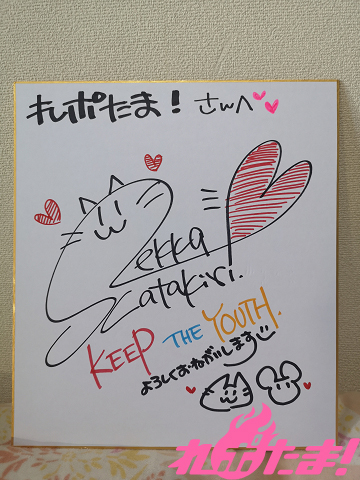 れポたま! さんへ
Zekka
Katakiri.
KEEP THE YOUTH.
よろしくおねがいします
れポたま!